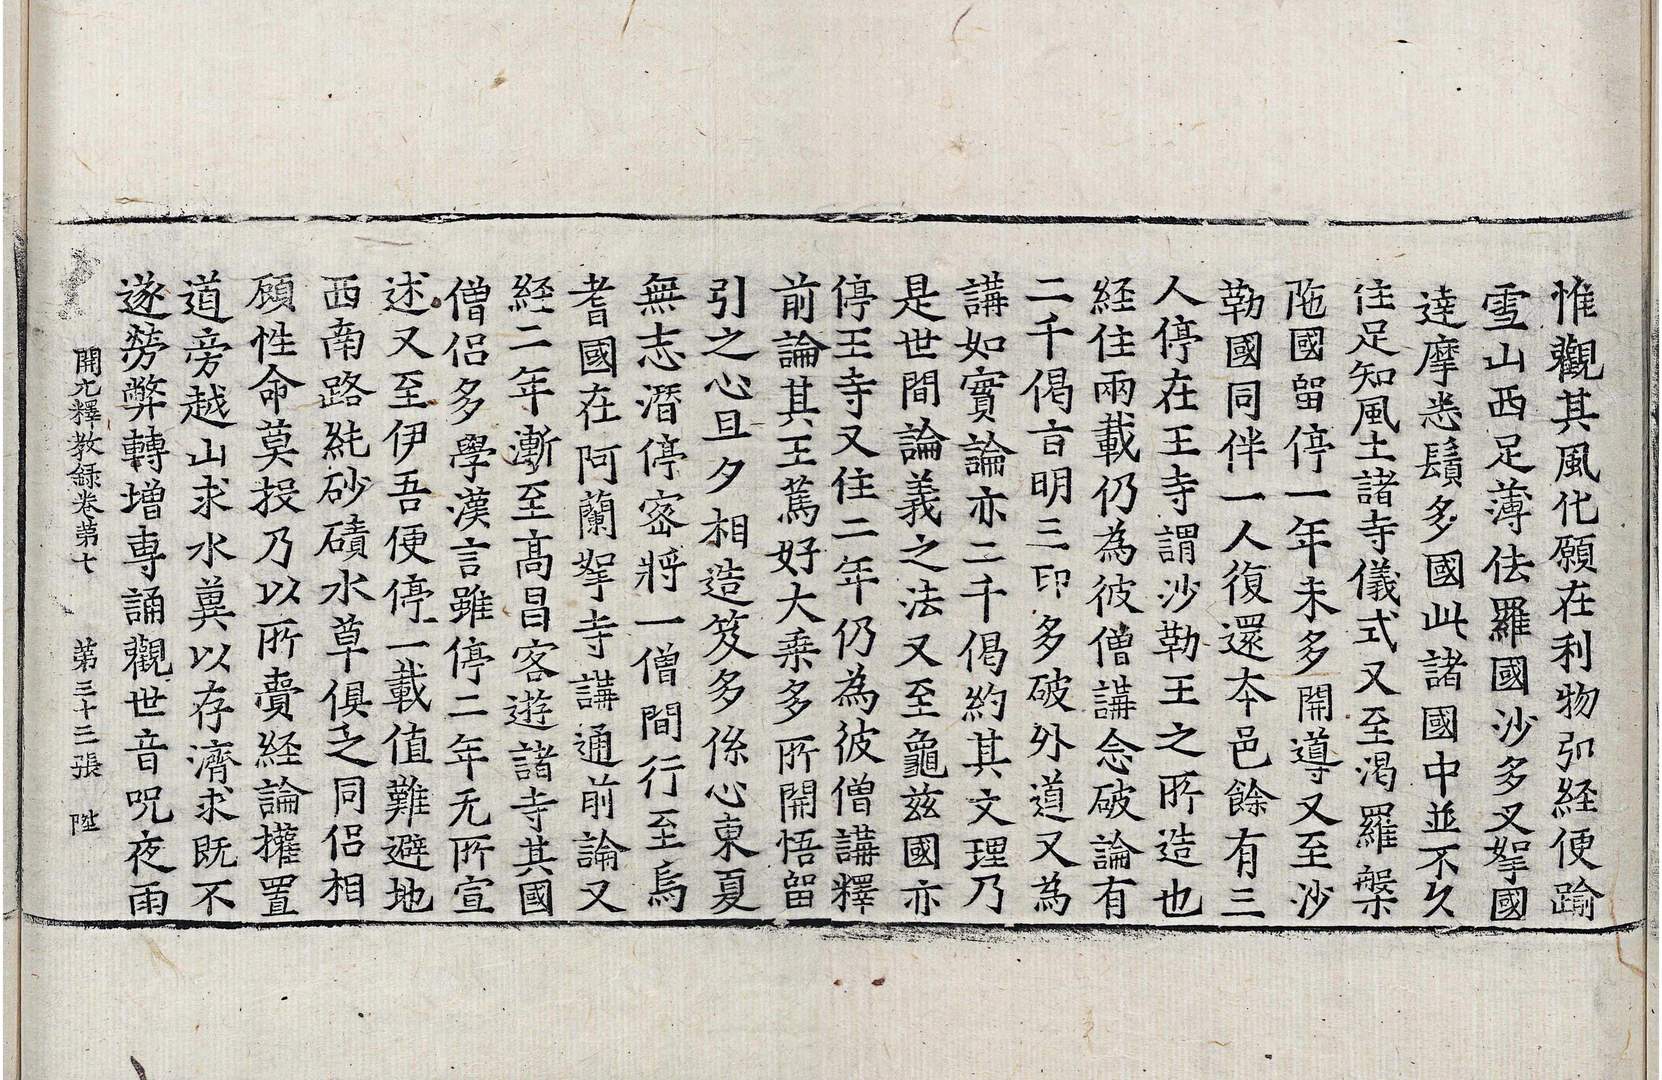 惟觀其風化願在利物弘経便踰
雪山西足薄佉羅國沙多叉拏國
達摩悉鬚多國此諸國中並不久
住足知風土諸寺儀式又至渴羅槃
陁國留停一年未多開導又至沙
勒國同伴一人復還本邑餘有三
人停在王寺謂沙勒王之所造也
経住兩載仍為彼僧講念破論有
二千偈言明三印多破外道又為
講如實論亦二千偈約其文理乃
是世間論義之法又至龜茲國亦
停王寺又住二年仍為彼僧講釋
前論其王篤好大乗多所開悟留
引之心旦夕相造笈多係心東夏
無志潛停密將一僧間行至烏
耆國在阿蘭拏寺講通前論又
経二年漸至高昌客遊諸寺其國
僧侶多學漢言雖停二年无所宣
述又至伊吾便停一載值難避地
西南路純砂磧水草俱乏同侶相
顧性命莫投乃以所賷経論攉置
道旁越山求水兾以存濟求既不
遂勞弊轉增専誦觀世音呪夜雨
開元釋教録卷苐七 苐三十三張 陞